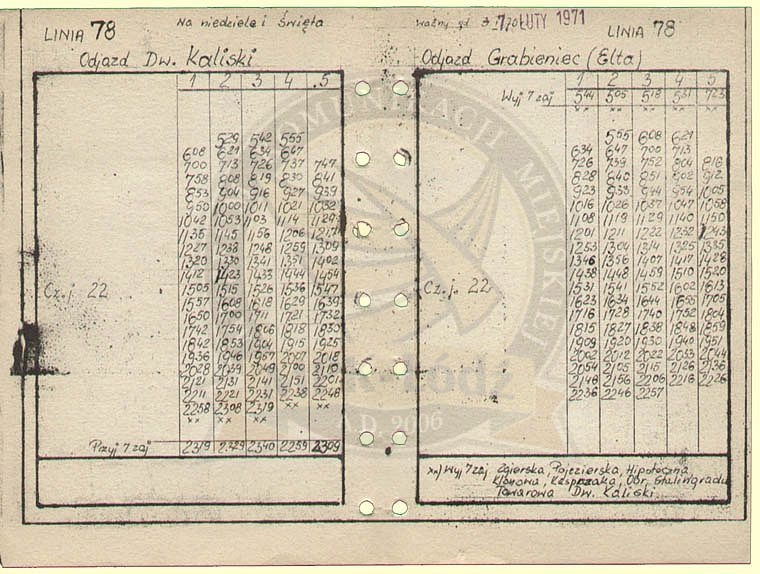 LINIA 78
Na niedziele i Święta
Odjazd Dw. Kaliski
1 2 3 4 5
529 542 555
608 621 634 647
700 713 726 737 747
758 808 819 830 841
853 904 916 927 939
950 1000 1011 1021 1032
1042 1053 1103 1114 1124
1135 1145 1156 1206 1217
1227 1238 1248 1259 1309
1320 1330 1341 1351 1402
1412 1423 1433 1444 1454
Cz. j. 22
1505 1515 1526 1536 1547
1557 1608 1618 1629 1639
1650 1700 1711 1721 1732
1742 1754 1806 1818 1830
1842 1853 1904 1915 1925
1936 1946 1957 2007 2018
2028 2039 2049 2100 2110
2121 2131 2141 2151 2201
2211 2221 2231 2238 2248
2258 2308 2319 xx xx
xx xx xx
Przyj 7 zaj 2319 2329 2340 2259 2309
ważny od LUTY 1971
LINIA 78
Odjazd Grabieniec (Elta)
1 2 3 4 5
Wyj 7 zaj 544 505 518 531 723
xx xx xx xx xx
555 608 621
634 647 700 713
726 739 752 804 816
828 840 851 902 912
923 933 944 954 1005
1016 1026 1037 1047 1058
1108 1119 1129 1140 1150
1201 1211 1222 1232 1243
1253 1304 1314 1325 1335
1346 1356 1407 1417 1428
1438 1448 1459 1510 1520
Cz. j. 22
1531 1541 1552 1602 1613
1623 1634 1644 1655 1705
1716 1728 1740 1752 1804
1815 1827 1838 1848 1859
1909 1920 1930 1940 1951
2002 2012 2022 2033 2044
2054 2105 2115 2126 2136
2146 2156 2206 2216 2226
2236 2246 2257
xx) Wyj 7 zaj Zgierska, Pojezierska, Hipoteczna
Klonowa, Kasprzaka, Obr. Stalingradu
Towarowa Dw. Kaliski